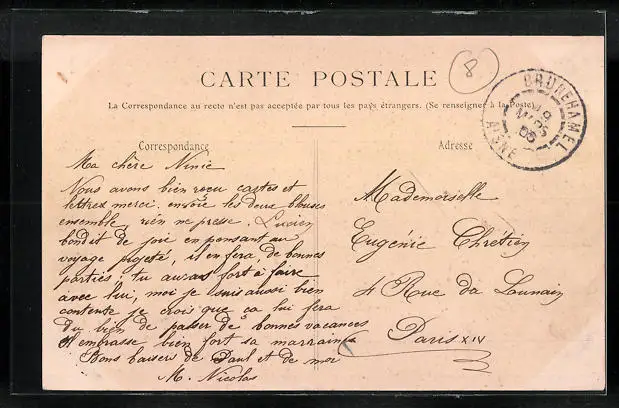 8
CARTE POSTALE
La Correspondance au recto n'est pas acceptée par tous les pays étrangers. (Se renseigner à la Poste)
BRUNEHAMEL
AISNE
05
Correspondance
Ma chère Ninie
Nous avons bien reçu cartes et
lettres merci. envoie les deux blouses
ensemble, rien ne presse. Lucien
bondit de joie en pensant au
voyage projeté, il en fera, de bonnes
parties. tu auras fort à faire
avec lui, moi je suis aussi bien
contente je crois que ca lui fera
du bien de passer de bonnes vacances
il embrasse bien fort sa marraine
Bons baisers de Paul et de moi
M. Nicolas
Adresse
Mademoiselle
Eugénie Chrétien
4 Rue du Lunain
Paris XIV